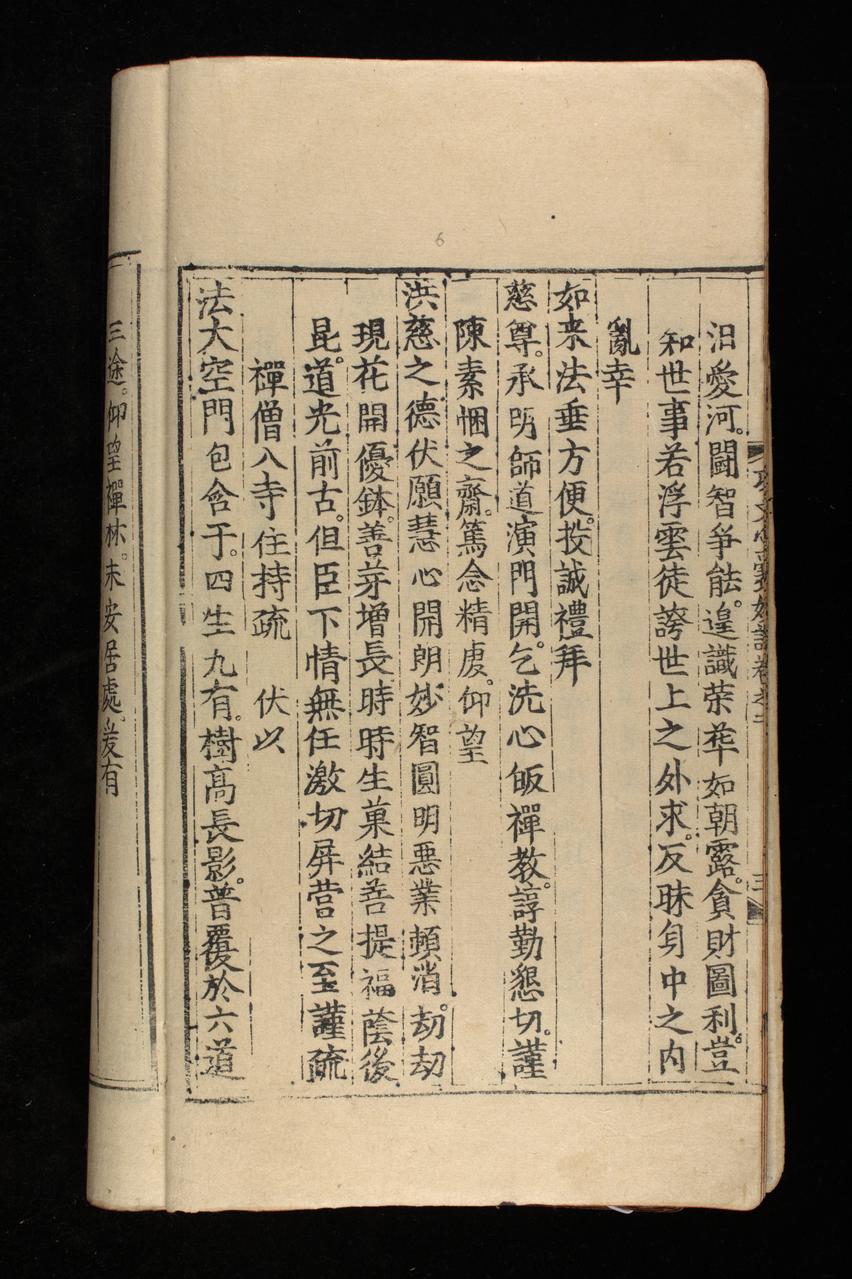 汩愛河。鬪智爭能。遑識荣華如朝露。貪財圖利。豈
知世事若浮雲徒誇世上之外求。反昧身中之内
亂幸
如来法垂方便。投誠禮拜
慈尊。承明師道演門開。乞洗心皈禪教。諄勤懇切。謹
陳素悃之齋。篤念精虔。仰望
洪慈之德伏願慧心開朗妙智圓明惡業頓消。劫劫
現花開優鉢。善芽增長。時時生菓結菩提福蔭後
昆。道光前古。但臣下情無任激切屏营之至謹疏
禪僧八寺住持疏 伏以
法大空門包含于。四生九有。樹髙長影。普覆於六道
三途。仰望禪林。未安居處。爰有
6